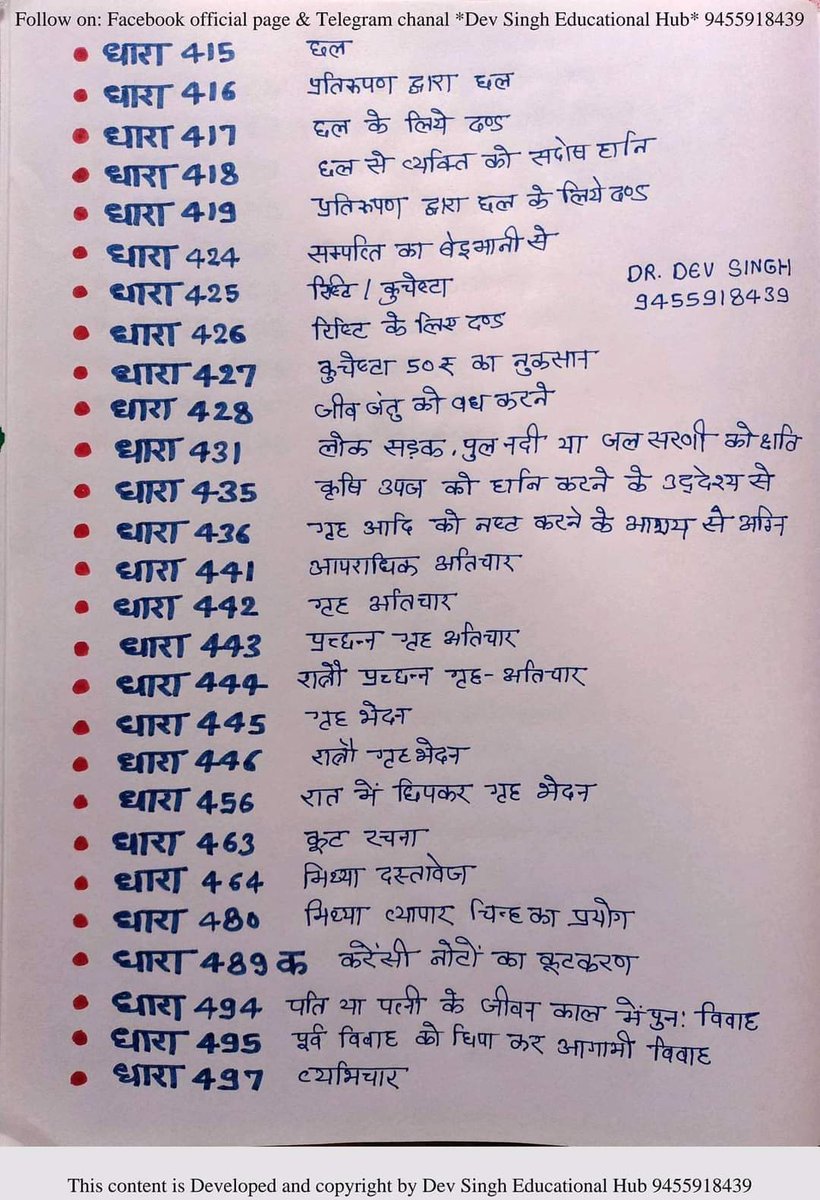 Follow on: Facebook official page & Telegram chanal *Dev Singh Educational Hub* 9455918439
• धारा 415 छल
• धारा 416 प्रतिरुपण द्वारा छल
• धारा 417 छल के लिये दण्ड
• धारा 418 छल से व्यक्ति को सदोष हानि
• धारा 419 प्रतिरुपण द्वारा छल के लिये दण्ड
• धारा 424 सम्पत्ति का बेइमानी से
DR. DEV SINGH
• धारा 425 रिष्टि / कुचेष्टा
9455918439
• धारा 426 रिष्टि के लिए दण्ड
• धारा 427 कुचेष्टा 50रु का नुकसान
• धारा 428 जीव जंतु को वध करने
• धारा 431 लोक सड़क, पुल नदी या जल सरणी को क्षति
• धारा 435 कृषि उपज को हानि करने के उद्देश्य से
• धारा 436 गृह आदि को नष्ट करने के आशय से अग्नि
• धारा 441 आपराधिक अतिचार
• धारा 442 गृह अतिचार
• धारा 443 प्रच्छन्न गृह अतिचार
• धारा 444 रात्रौ प्रच्छन्न गृह-अतिचार
• धारा 445 गृह भेदन
• धारा 446 रात्रौ गृह भेदन
• धारा 456 रात में छिपकर गृह भेदन
• धारा 463 कूट रचना
• धारा 464 मिथ्या दस्तावेज
• धारा 480 मिथ्या व्यापार चिन्ह का प्रयोग
• धारा 489 क करेंसी नोटों का कूटकरण
• धारा 494 पति या पत्नी के जीवन काल में पुन: विवाह
• धारा 495 पूर्व विवाह को छिपा कर आगामी विवाह
• धारा 497 व्यभिचार
This content is Developed and copyright by Dev Singh Educational Hub 9455918439